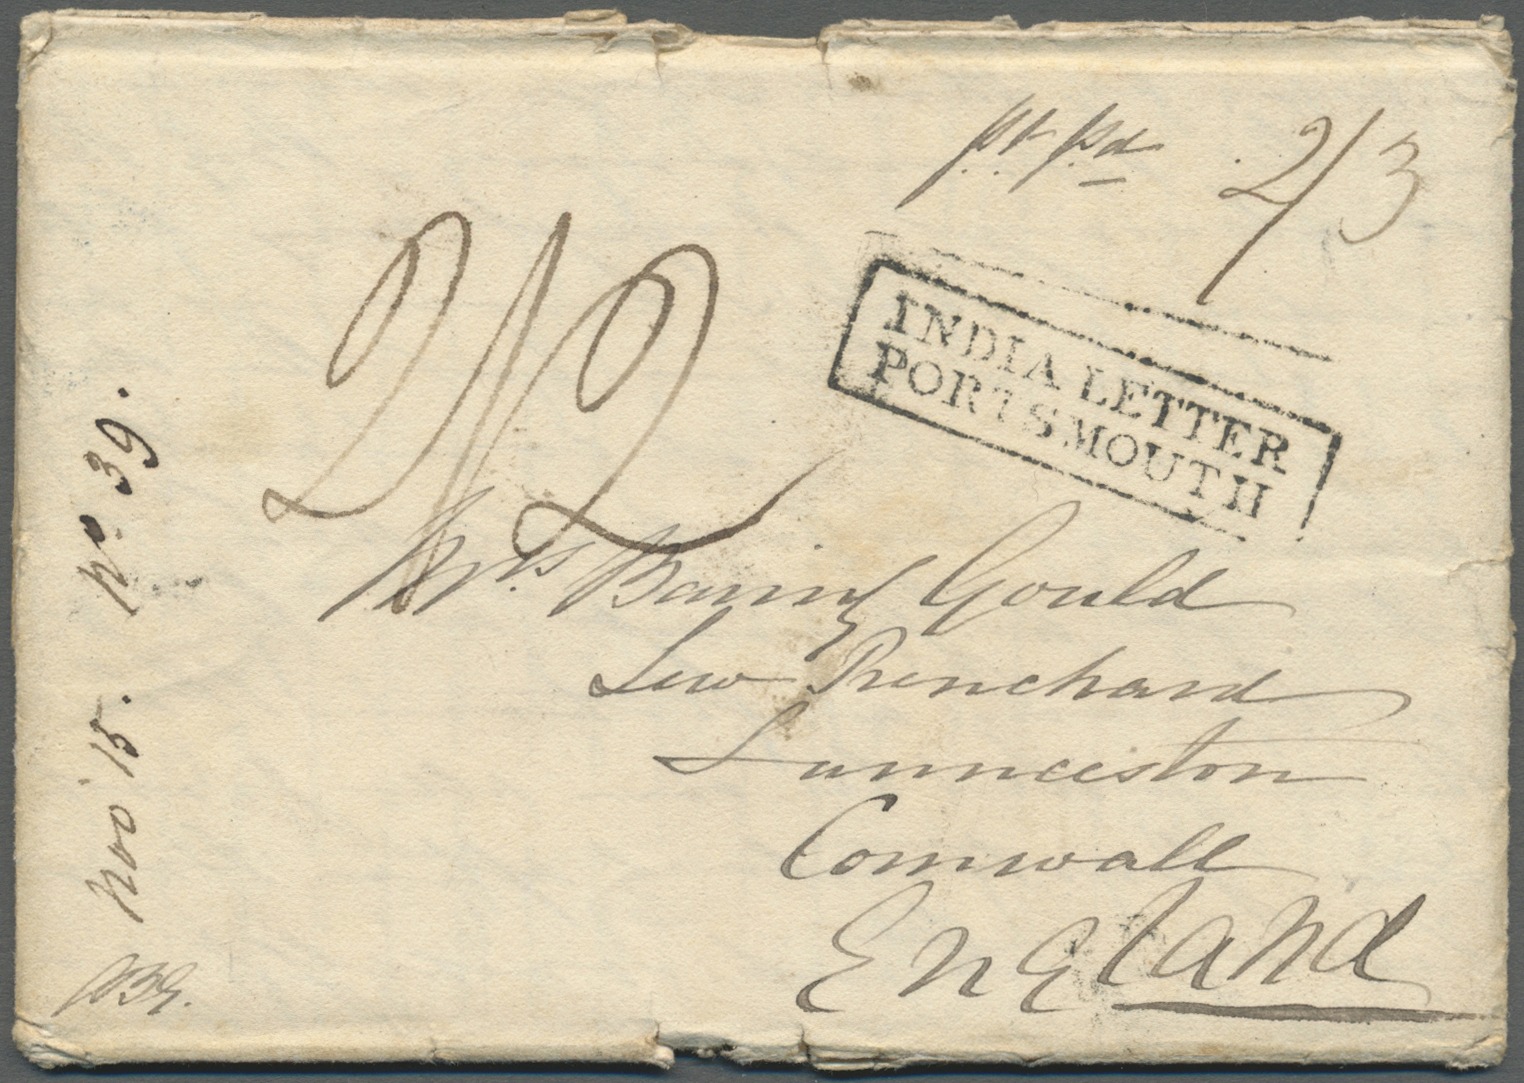 pt pd 2/3
2/2
INDIA LETTER
PORTSMOUTH
Mrs Baring Gould
Lew Trenchard
Launceston
Cornwall
England
Nov 15. No 39.